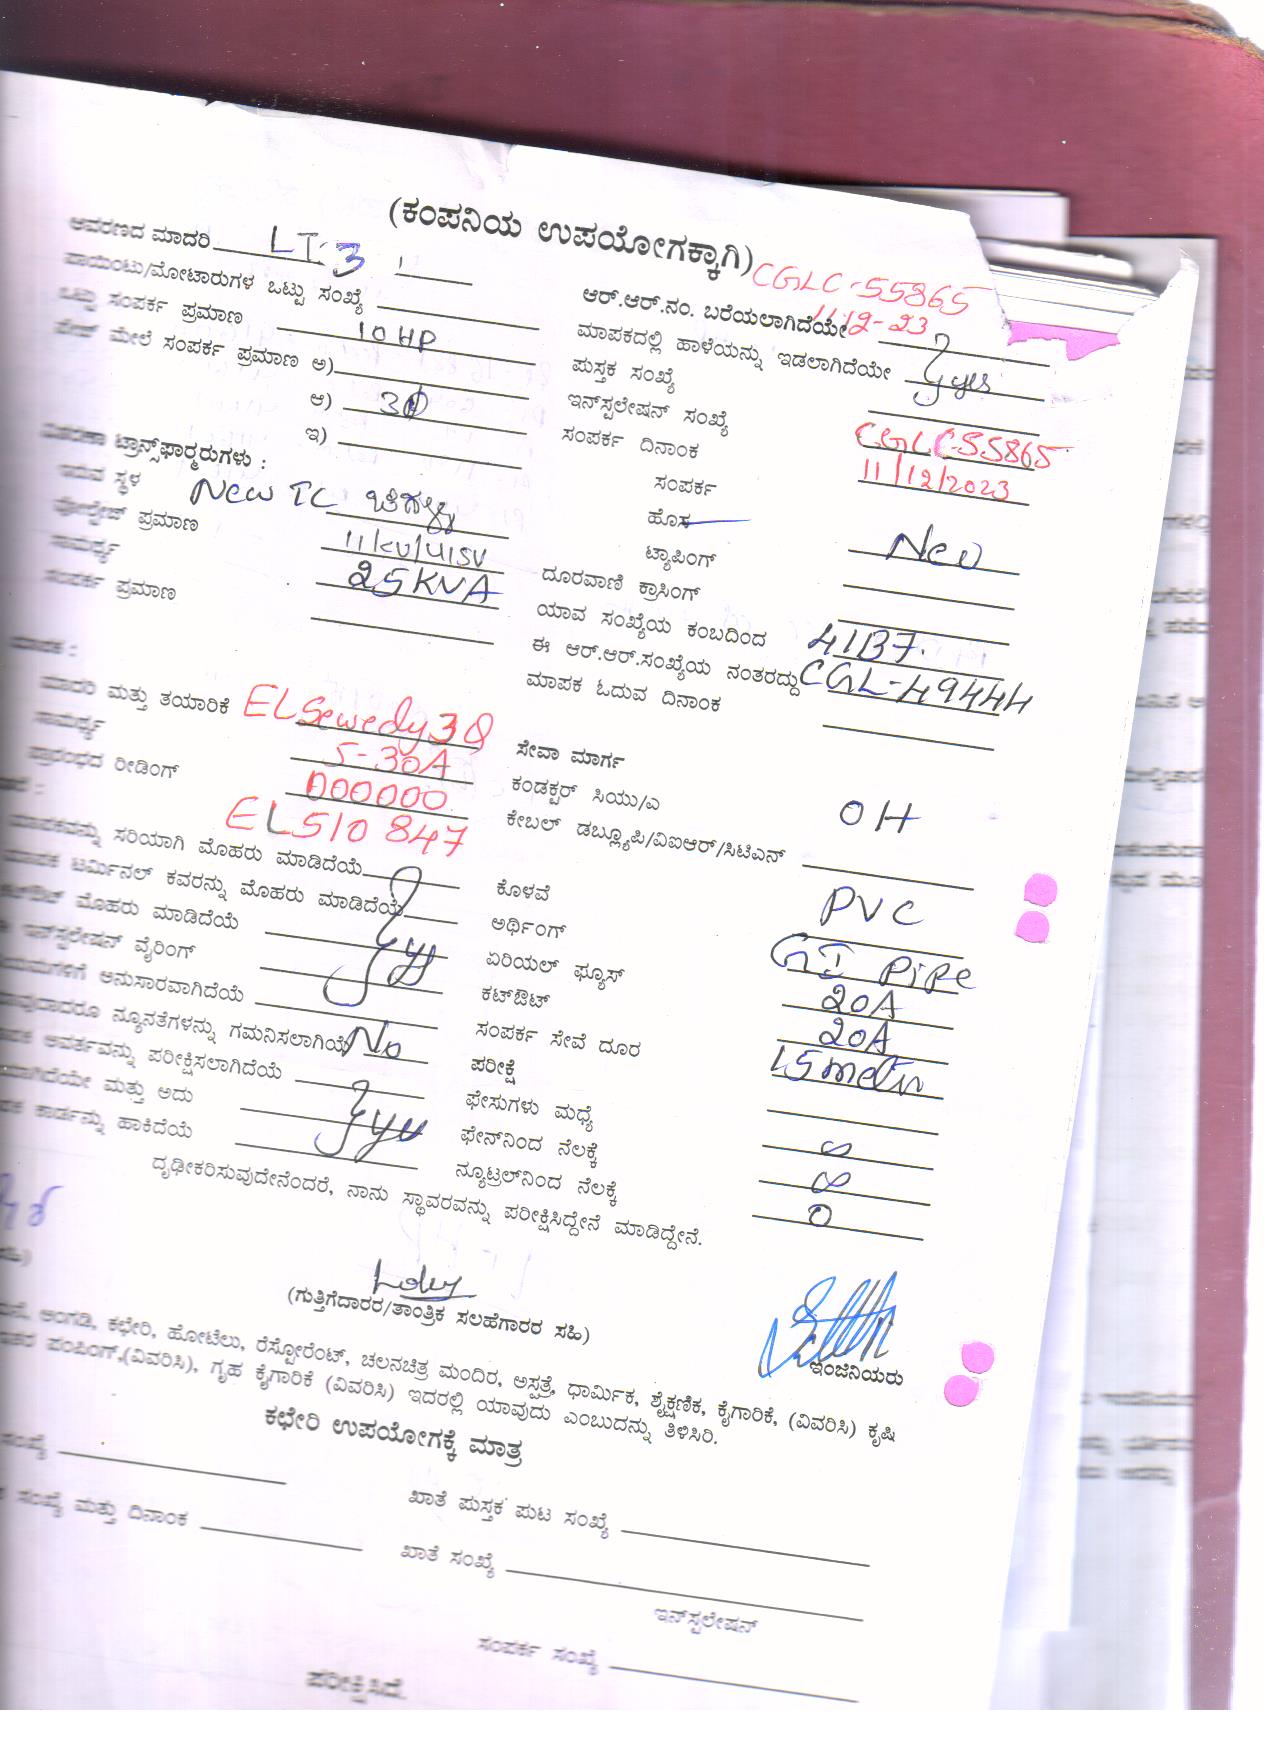 (ಕಂಪನಿಯ ಉಪಯೋಗಕ್ಕಾಗಿ)
CGLC-55865
11-12-23
ಆವರಣದ ಮಾದರಿ LT-3
ಪಾಯಿಂಟು/ಮೋಟಾರುಗಳ ಒಟ್ಟು ಸಂಖ್ಯೆ
ಒಟ್ಟು ಸಂಪರ್ಕ ಪ್ರಮಾಣ 10 HP
ಪೇಜ್ ಮೇಲೆ ಸಂಪರ್ಕ ಪ್ರಮಾಣ ಅ)
ಆ) 3Ø
ಇ)
ವಿತರಣಾ ಟ್ರಾನ್ಸ್‌ಫಾರ್ಮರುಗಳು :
ಇರುವ ಸ್ಥಳ New TC
ವೋಲ್ಟೇಜ್ ಪ್ರಮಾಣ 11KV/415V
ಸಾಮರ್ಥ್ಯ 25KVA
ಸಂಪರ್ಕ ಪ್ರಮಾಣ
ಮಾಪಕ :
ಮಾದರಿ ಮತ್ತು ತಯಾರಿಕೆ ELSewedy 3Ø
ಸಾಮರ್ಥ್ಯ 5-30A
ಪ್ರಾರಂಭದ ರೀಡಿಂಗ್ 000000
EL510847
ಮಾಪಕವನ್ನು ಸರಿಯಾಗಿ ಮೊಹರು ಮಾಡಿದೆಯೆ
ಮಾಪಕ ಟರ್ಮಿನಲ್ ಕವರನ್ನು ಮೊಹರು ಮಾಡಿದೆಯೆ
ಮೊಹರು ಮಾಡಿದೆಯೆ yes
ಇನ್‌ಸ್ಟಲೇಷನ್ ವೈರಿಂಗ್
ನಿಯಮಗಳಿಗೆ ಅನುಸಾರವಾಗಿದೆಯೆ
ಯಾವುದಾದರೂ ನ್ಯೂನತೆಗಳನ್ನು ಗಮನಿಸಲಾಗಿಯೆ No
ಆವರ್ತವನ್ನು ಪರೀಕ್ಷಿಸಲಾಗಿದೆಯೆ
ಮತ್ತು ಅದು yes
ಕಾರ್ಡನ್ನು ಹಾಕಿದೆಯೆ
ಆರ್.ಆರ್.ನಂ. ಬರೆಯಲಾಗಿದೆಯೇ
ಮಾಪಕದಲ್ಲಿ ಹಾಳೆಯನ್ನು ಇಡಲಾಗಿದೆಯೇ yes
ಪುಸ್ತಕ ಸಂಖ್ಯೆ
ಇನ್‌ಸ್ಟಲೇಷನ್ ಸಂಖ್ಯೆ CGLC-55865
ಸಂಪರ್ಕ ದಿನಾಂಕ 11/12/2023
ಸಂಪರ್ಕ
ಹೊಸ New
ಟ್ಯಾಪಿಂಗ್
ದೂರವಾಣಿ ಕ್ರಾಸಿಂಗ್
ಯಾವ ಸಂಖ್ಯೆಯ ಕಂಬದಿಂದ 41B7.
ಈ ಆರ್.ಆರ್.ಸಂಖ್ಯೆಯ ನಂತರದ್ದು CGL-49444
ಮಾಪಕ ಓದುವ ದಿನಾಂಕ
ಸೇವಾ ಮಾರ್ಗ
ಕಂಡಕ್ಟರ್ ಸಿಯು/ಎ OH
ಕೇಬಲ್ ಡಬ್ಲ್ಯೂಪಿ/ವಿಐಆರ್/ಸಿಟಿಎನ್
ಕೊಳವೆ PVC
ಅರ್ಥಿಂಗ್ GI PiPe
ಏರಿಯಲ್ ಫ್ಯೂಸ್ 20A
ಕಟ್‌ಔಟ್ 20A
ಸಂಪರ್ಕ ಸೇವೆ ದೂರ 15 meter
ಪರೀಕ್ಷೆ
ಫೇಸುಗಳು ಮಧ್ಯೆ ∞
ಫೇಸ್‌ನಿಂದ ನೆಲಕ್ಕೆ ∞
ನ್ಯೂಟ್ರಲ್‌ನಿಂದ ನೆಲಕ್ಕೆ 0
ದೃಢೀಕರಿಸುವುದೇನೆಂದರೆ, ನಾನು ಸ್ಥಾವರವನ್ನು ಪರೀಕ್ಷಿಸಿದ್ದೇನೆ ಮಾಡಿದ್ದೇನೆ.
(ಗುತ್ತಿಗೆದಾರರ/ತಾಂತ್ರಿಕ ಸಲಹೆಗಾರರ ಸಹಿ)
ಇಂಜಿನಿಯರು
ಅಂಗಡಿ, ಕಛೇರಿ, ಹೋಟೆಲು, ರೆಸ್ಟೋರೆಂಟ್, ಚಲನಚಿತ್ರ ಮಂದಿರ, ಅಸ್ಪತ್ರೆ, ಧಾರ್ಮಿಕ, ಶೈಕ್ಷಣಿಕ, ಕೈಗಾರಿಕೆ, (ವಿವರಿಸಿ) ಕೃಷಿ
ಪಂಪಿಂಗ್,(ವಿವರಿಸಿ), ಗೃಹ ಕೈಗಾರಿಕೆ (ವಿವರಿಸಿ) ಇದರಲ್ಲಿ ಯಾವುದು ಎಂಬುದನ್ನು ತಿಳಿಸಿರಿ.
ಕಛೇರಿ ಉಪಯೋಗಕ್ಕೆ ಮಾತ್ರ
ಸಂಖ್ಯೆ
ಖಾತೆ ಪುಸ್ತಕ ಪುಟ ಸಂಖ್ಯೆ
ಸಂಖ್ಯೆ ಮತ್ತು ದಿನಾಂಕ
ಖಾತೆ ಸಂಖ್ಯೆ
ಇನ್‌ಸ್ಟಲೇಷನ್
ಸಂಪರ್ಕ ಸಂಖ್ಯೆ
ಪರೀಕ್ಷಿಸಿದೆ.